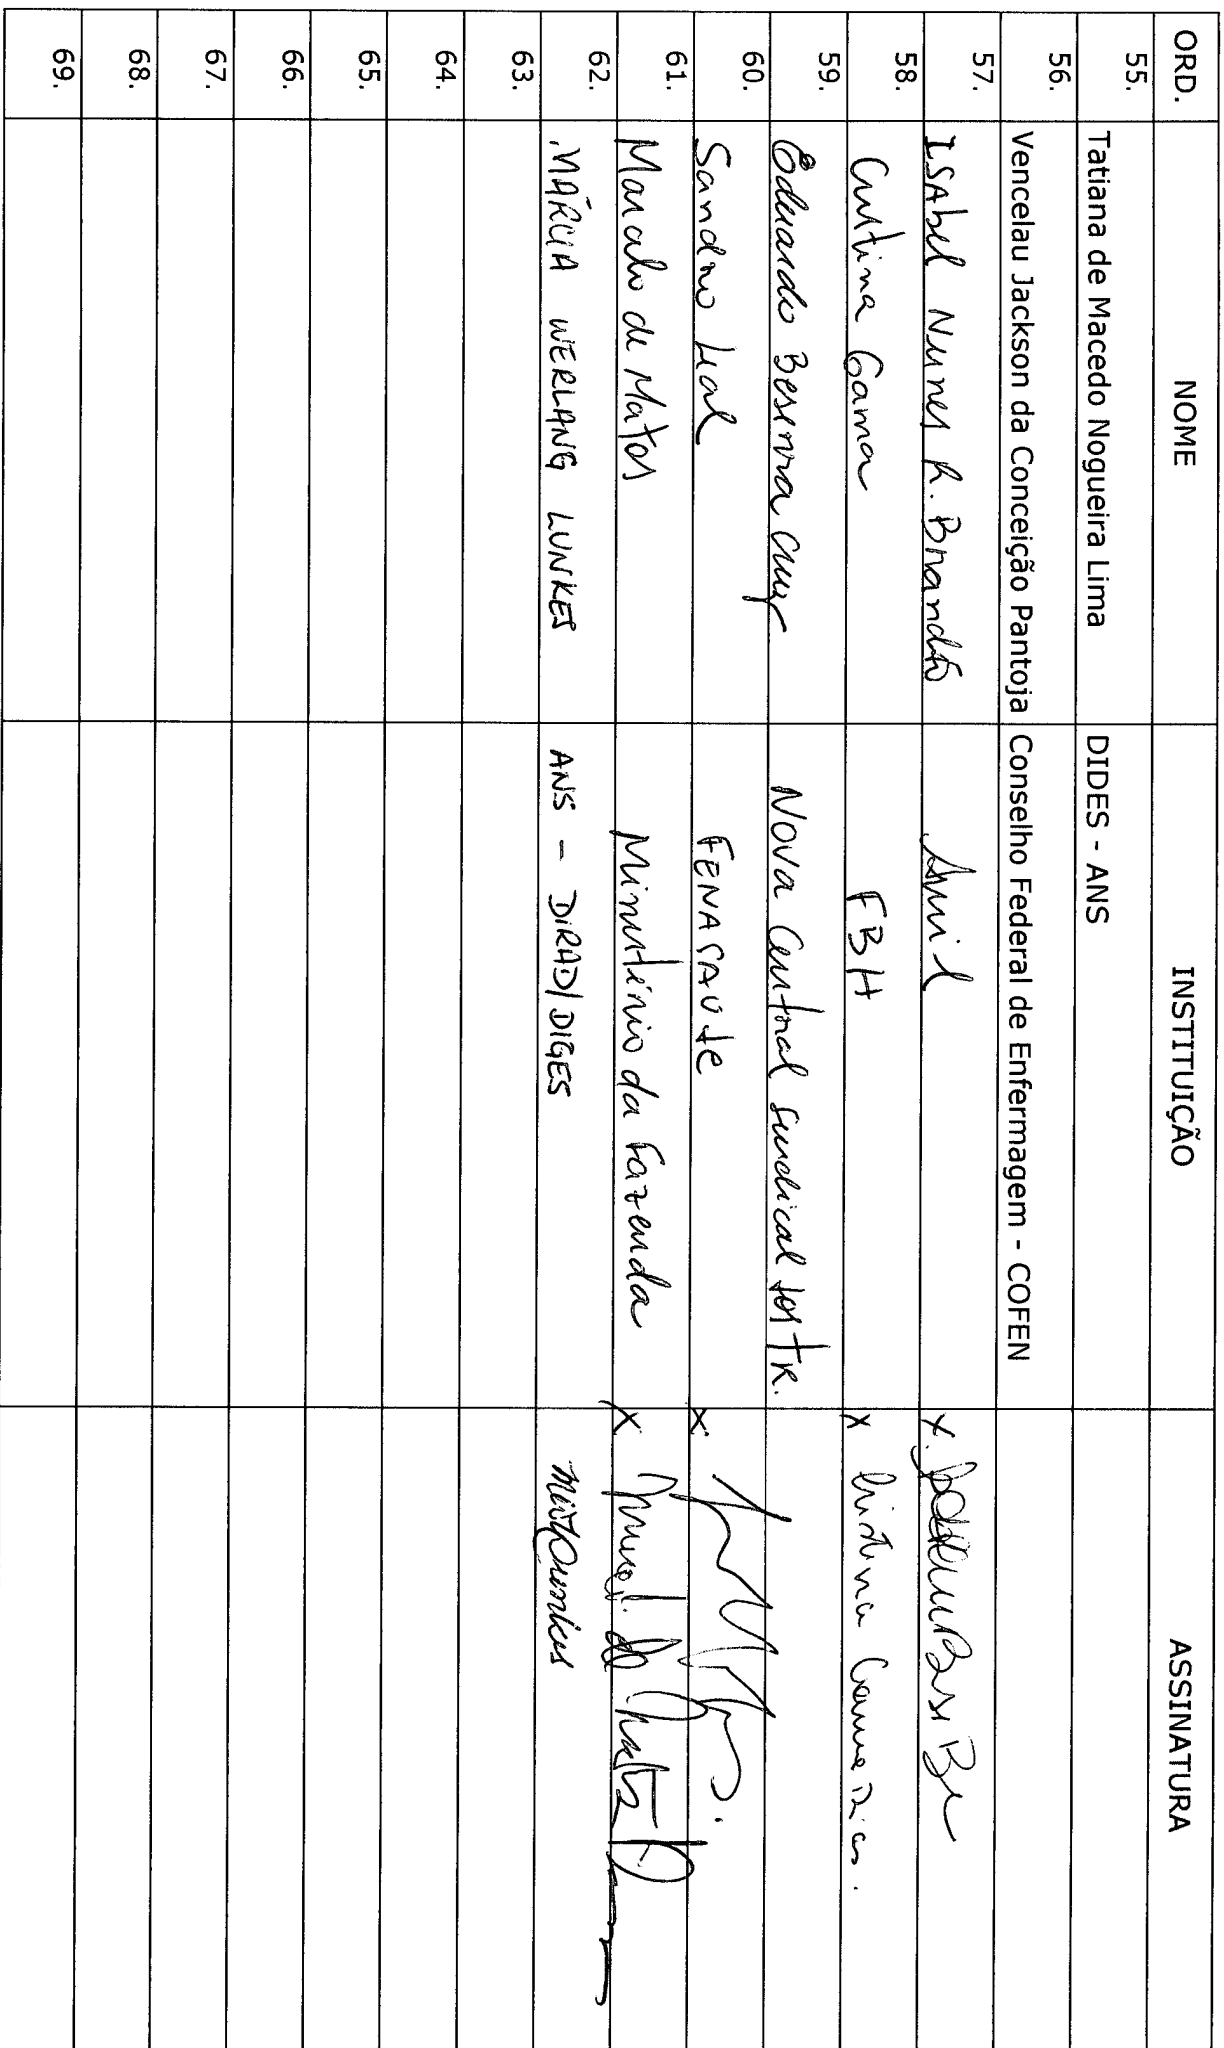 ORD. NOME INSTITUIÇÃO ASSINATURA
55. Tatiana de Macedo Nogueira Lima DIDES - ANS
56. Vencelau Jackson da Conceição Pantoja Conselho Federal de Enfermagem - COFEN
57. ISAbel Nunes R. Brandão Amil x
58. Cristina Gama FBH x Cristina Gama Dias.
59. Eduardo Beserra Nova Central Sindical
60. Sandro Leal FENASAÚDE x
61. Marcelo de Matos Ministério da Fazenda x de Matos
62. MÁRCIA WERLANG LUNKES ANS - DIRAD/DIGES
63.
64.
65.
66.
67.
68.
69.